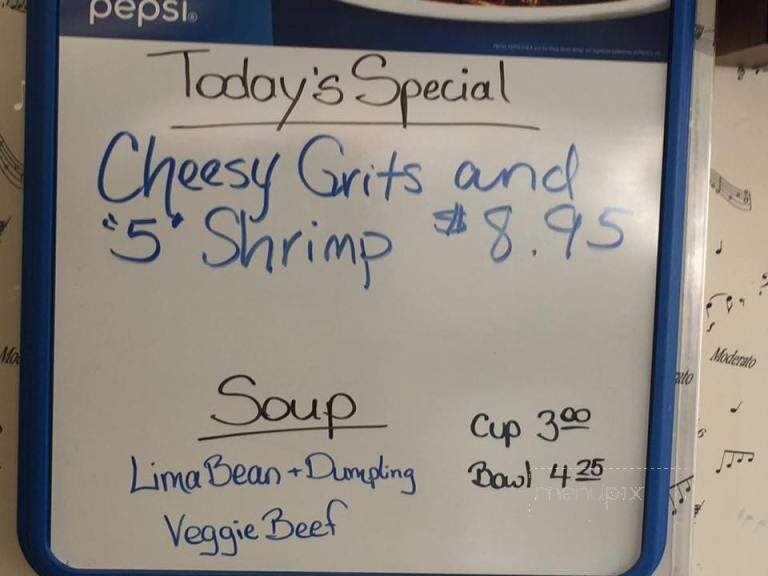 pepsi®
Today's Special
Cheesy Grits and
"5" Shrimp $8.95
Soup
Cup 3.00
Lima Bean + Dumpling
Bowl 4.25
Veggie Beef
menupix
Moderato